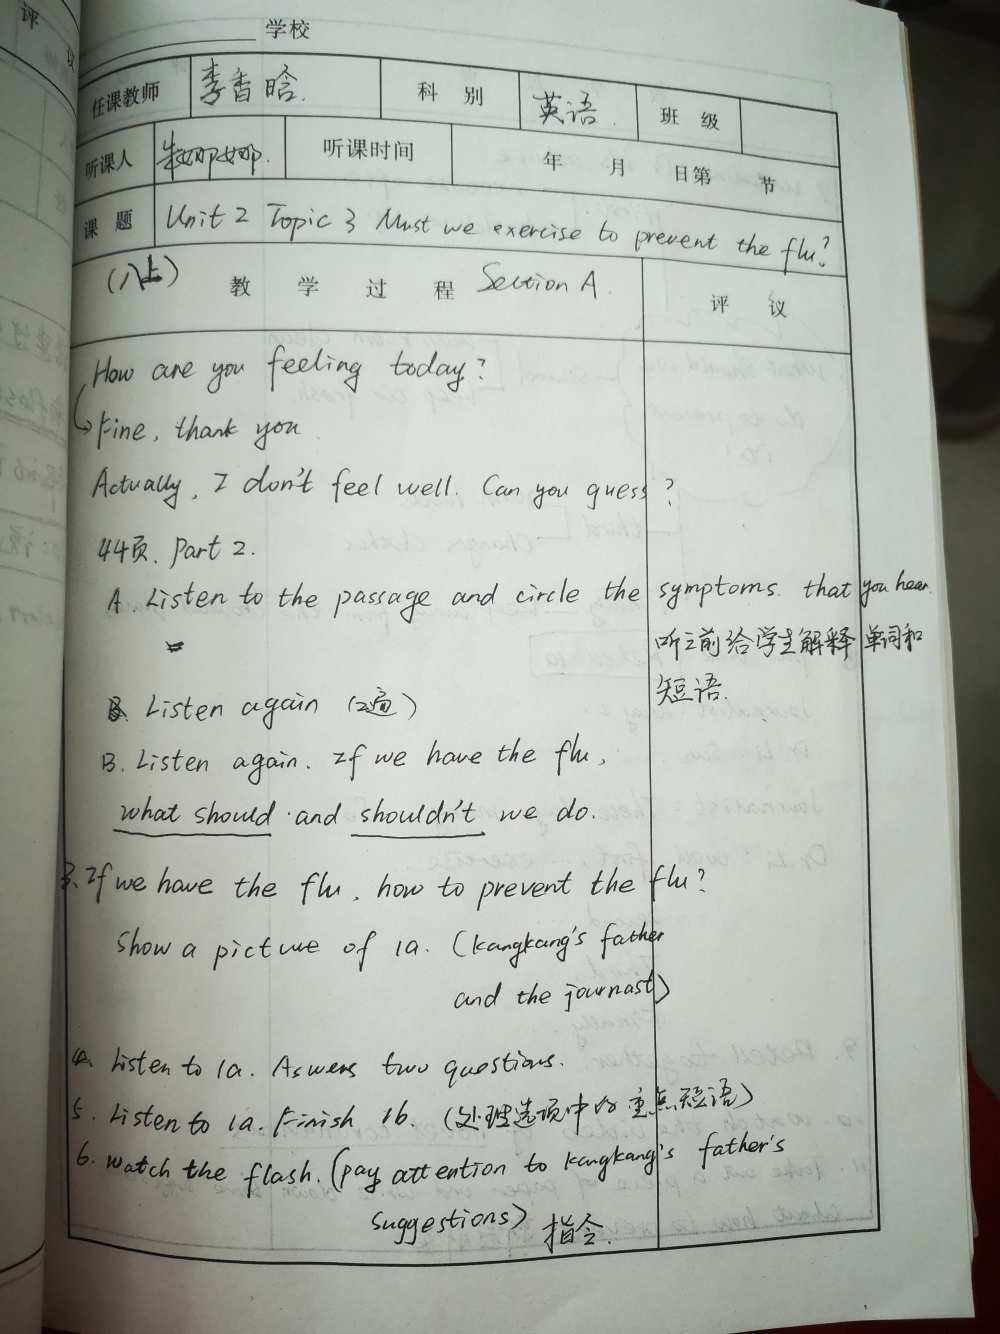 评 议
学校
任课教师 李香晗. 科 别 英语. 班 级
听课人 朱娜娜. 听课时间 年 月 日第 节
课 题 Unit 2 Topic 3 Must we exercise to prevent the flu?
(八上) 教 学 过 程 Section A. 评 议
How are you feeling today?
Fine, thank you.
Actually, I don't feel well. Can you guess?
44页. Part 2.
A. Listen to the passage and circle the symptoms. that you hear.
听之前给学生解释单词和
短语.
Listen again (2遍)
B. Listen again. If we have the flu,
what should and shouldn't we do.
3. If we have the flu, how to prevent the flu?
Show a picture of 1a. (Kangkang's father
and the journast)
4. Listen to 1a. Aswers two questions.
5. Listen to 1a. Finish 1b. (处理选项中的重点短语)
6. Watch the flash. (pay attention to Kangkang's father's
suggestions) 指令.